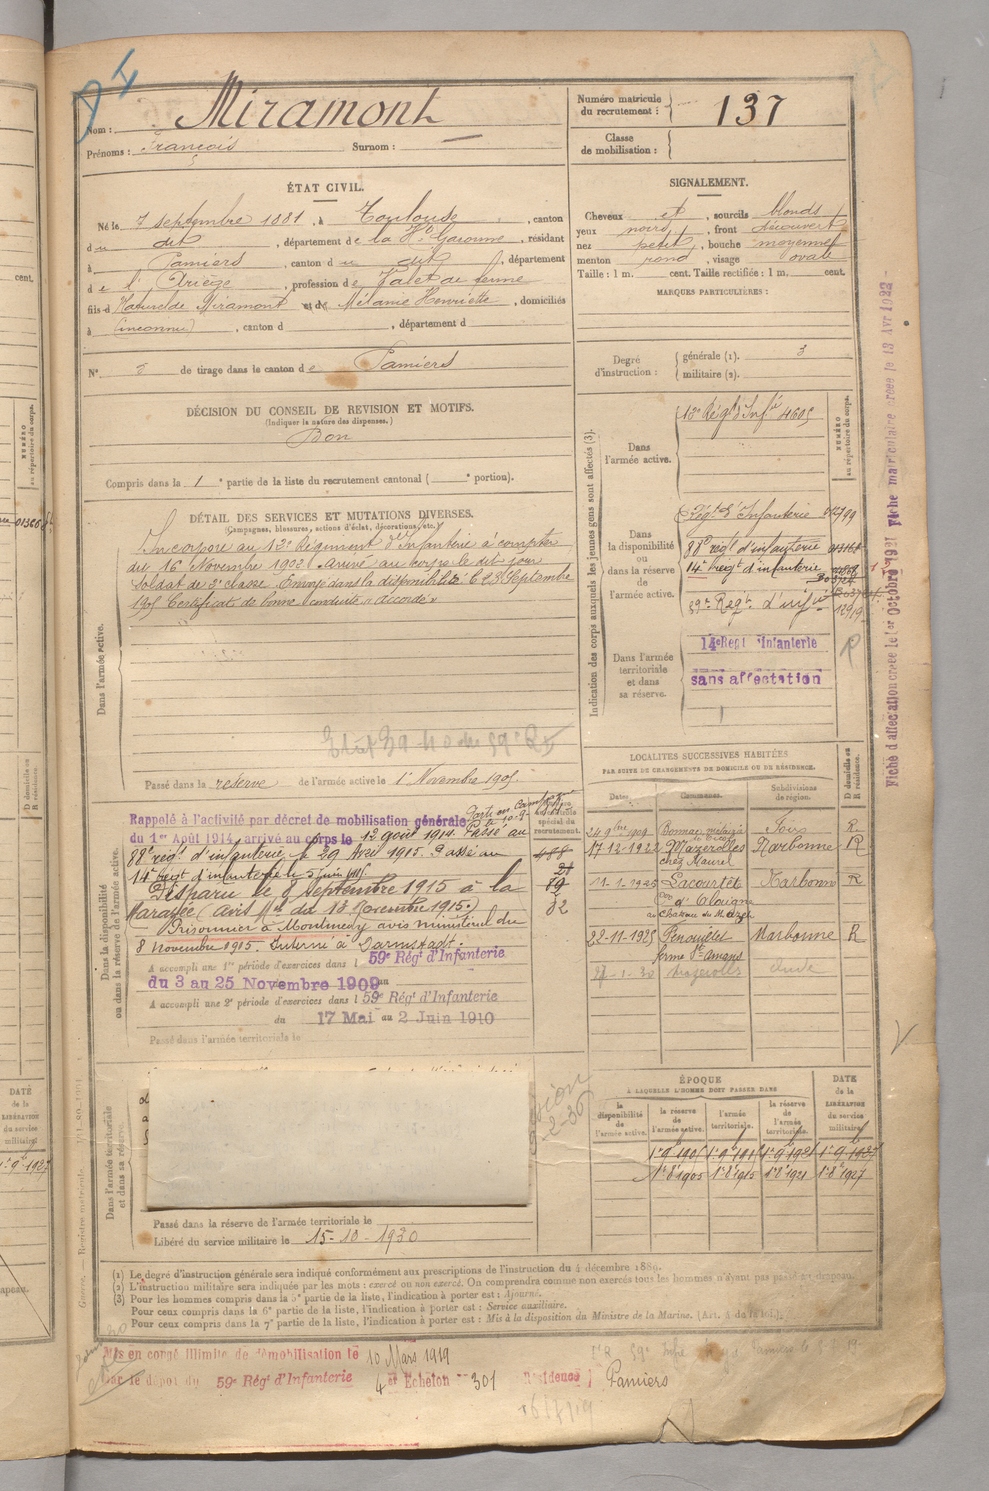 Nom : Miramont
Prénoms : François Surnom : —
Numéro matricule du recrutement : 137
Classe de mobilisation :
ÉTAT CIVIL.
Né le 7 septembre 1881, à Toulouse, canton
du dit, département de la Hte Garonne, résidant
à Pamiers, canton du dit, département
de l'Ariège, profession de Valet de ferme
fils d Naturel de Miramont et de Mélanie Henriette, domiciliés
à (inconnu), canton d , département d
N° 5 de tirage dans le canton de Pamiers
SIGNALEMENT.
Cheveux et , sourcils blonds
yeux noirs, front découvert
nez petit, bouche moyenne
menton rond, visage ovale
Taille : 1 m. cent. Taille rectifiée : 1 m. cent.
MARQUES PARTICULIÈRES :
Degré d'instruction : générale (1). 3
militaire (2).
DÉCISION DU CONSEIL DE REVISION ET MOTIFS.
(Indiquer la nature des dispenses.)
Bon
Compris dans la 1e partie de la liste du recrutement cantonal ( e portion).
DÉTAIL DES SERVICES ET MUTATIONS DIVERSES.
(Campagnes, blessures, actions d'éclat, décorations, etc.)
Dans l'armée active.
Incorporé au 12e Régiment d'Infanterie à compter
du 16 Novembre 1902. Arrivé au corps le dit jour
Soldat de 2e classe. Envoyé dans la disponibilité le 23 Septembre
1905 Certificat de bonne conduite "Accordé"
Passé dans la réserve de l'armée active le 1er Novembre 1905
Dans la disponibilité ou dans la réserve de l'armée active.
Rappelé à l'activité par décret de mobilisation générale
du 1er Août 1914, arrivé au corps le 12 août 1914. Passé au
88e régt d'infanterie le 29 Avril 1915. Passé au
14e régt d'infanterie le 5 juin 1915
Disparu le 8 septembre 1915 à la
Harazée (avis Mel du 13 Novembre 1915.)
Prisonnier à Montmédy avis ministériel du
8 novembre 1915. Interné à Darmstadt.
A accompli une 1re période d'exercices dans l 59e Régt d'Infanterie
du 3 au 25 Novembre 1909 au
A accompli une 2e période d'exercices dans l 59e Régt d'Infanterie
du 17 Mai au 2 Juin 1910
Passé dans l'armée territoriale le
Dans l'armée territoriale et dans sa réserve.
Passé dans la réserve de l'armée territoriale le
Libéré du service militaire le 15-10-1930
Indication des corps auxquels les jeunes gens sont affectés (3).
NUMÉRO au répertoire du corps.
Dans l'armée active.
12e Régt d'Infie 4605
Dans la disponibilité ou dans la réserve de l'armée active.
Régt d'Infanterie
88e régt d'infanterie
14e régt d'infanterie
59e Régt d'infie
Dans l'armée territoriale et dans sa réserve.
14e Régt d'Infanterie
sans affectation
Fiche d'affectation créée le 1er Octobre 1921 Fiche matriculaire créée le 13 Avr 1922
LOCALITÉS SUCCESSIVES HABITÉES
PAR SUITE DE CHANGEMENTS DE DOMICILE OU DE RÉSIDENCE.
Dates. Communes. Subdivisions de région. D domicile ou R résidence.
24 9bre 1909 Foix R
17-12-1922 Mazerolles chez Maurel Narbonne R
11-1-1925 Lacourtète Narbonne R
22-11-1925 Fenouillet ferme St Amans Narbonne R
Mazerolles Aude
ÉPOQUE
À LAQUELLE L'HOMME DOIT PASSER DANS
la disponibilité de l'armée active. la réserve de l'armée active. l'armée territoriale. la réserve de l'armée territoriale. DATE de la LIBÉRATION du service militaire.
1er 8e 1905 1er 8e 1915 1er 8e 1921 1er 8e 1927
(1) Le degré d'instruction générale sera indiqué conformément aux prescriptions de l'instruction du 4 décembre 1889.
(2) L'instruction militaire sera indiquée par les mots : exercé ou non exercé. On comprendra comme non exercés tous les hommes n'ayant pas passé au drapeau.
(3) Pour les hommes compris dans la 5e partie de la liste, l'indication à porter est : Ajourné.
Pour ceux compris dans la 6e partie de la liste, l'indication à porter est : Service auxiliaire.
Pour ceux compris dans la 7e partie de la liste, l'indication à porter est : Mis à la disposition du Ministre de la Marine. (Art. 4 de la loi.)
Mis en congé illimité de démobilisation le 10 Mars 1919
par le dépôt du 59e Régt d'Infanterie 4e Echelon n° 301 Résidence Pamiers